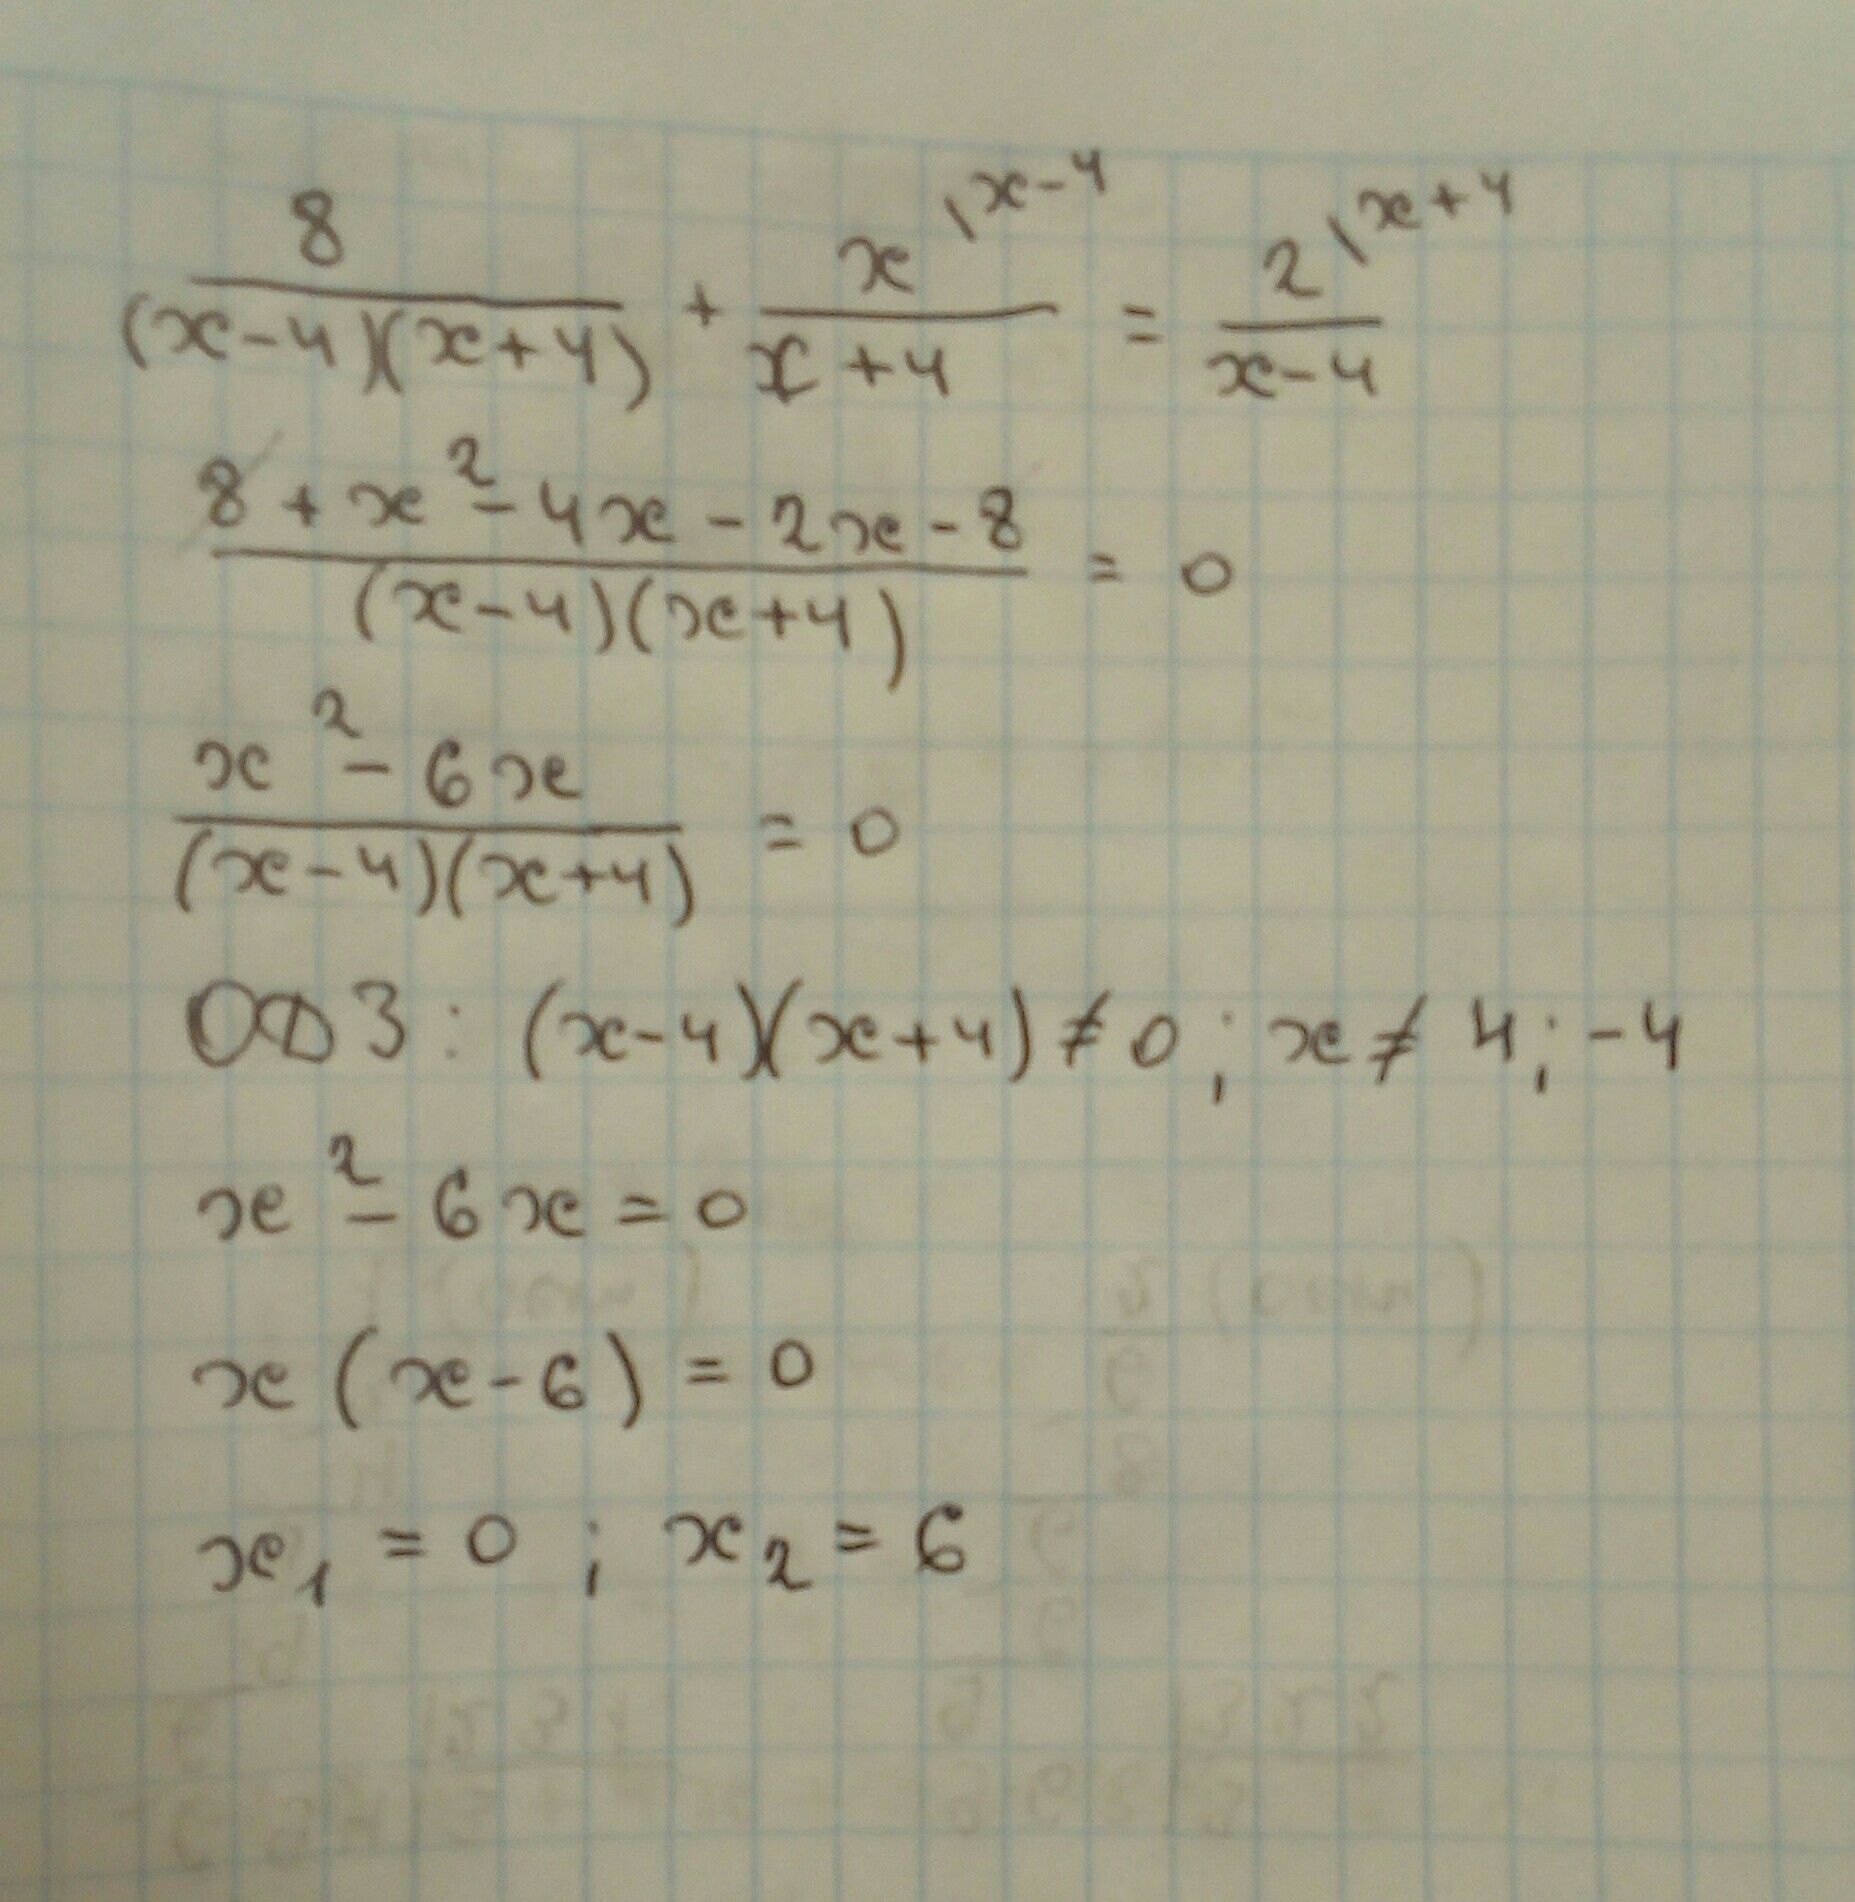 8/((x-4)(x+4)) + x^{\x-4}/(x+4) = 2^{\x+4}/(x-4)
(8 + x² - 4x - 2x - 8)/((x-4)(x+4)) = 0
(x² - 6x)/((x-4)(x+4)) = 0
ОДЗ: (x-4)(x+4) ≠ 0; x ≠ 4; -4
x² - 6x = 0
x(x-6) = 0
x₁ = 0; x₂ = 6